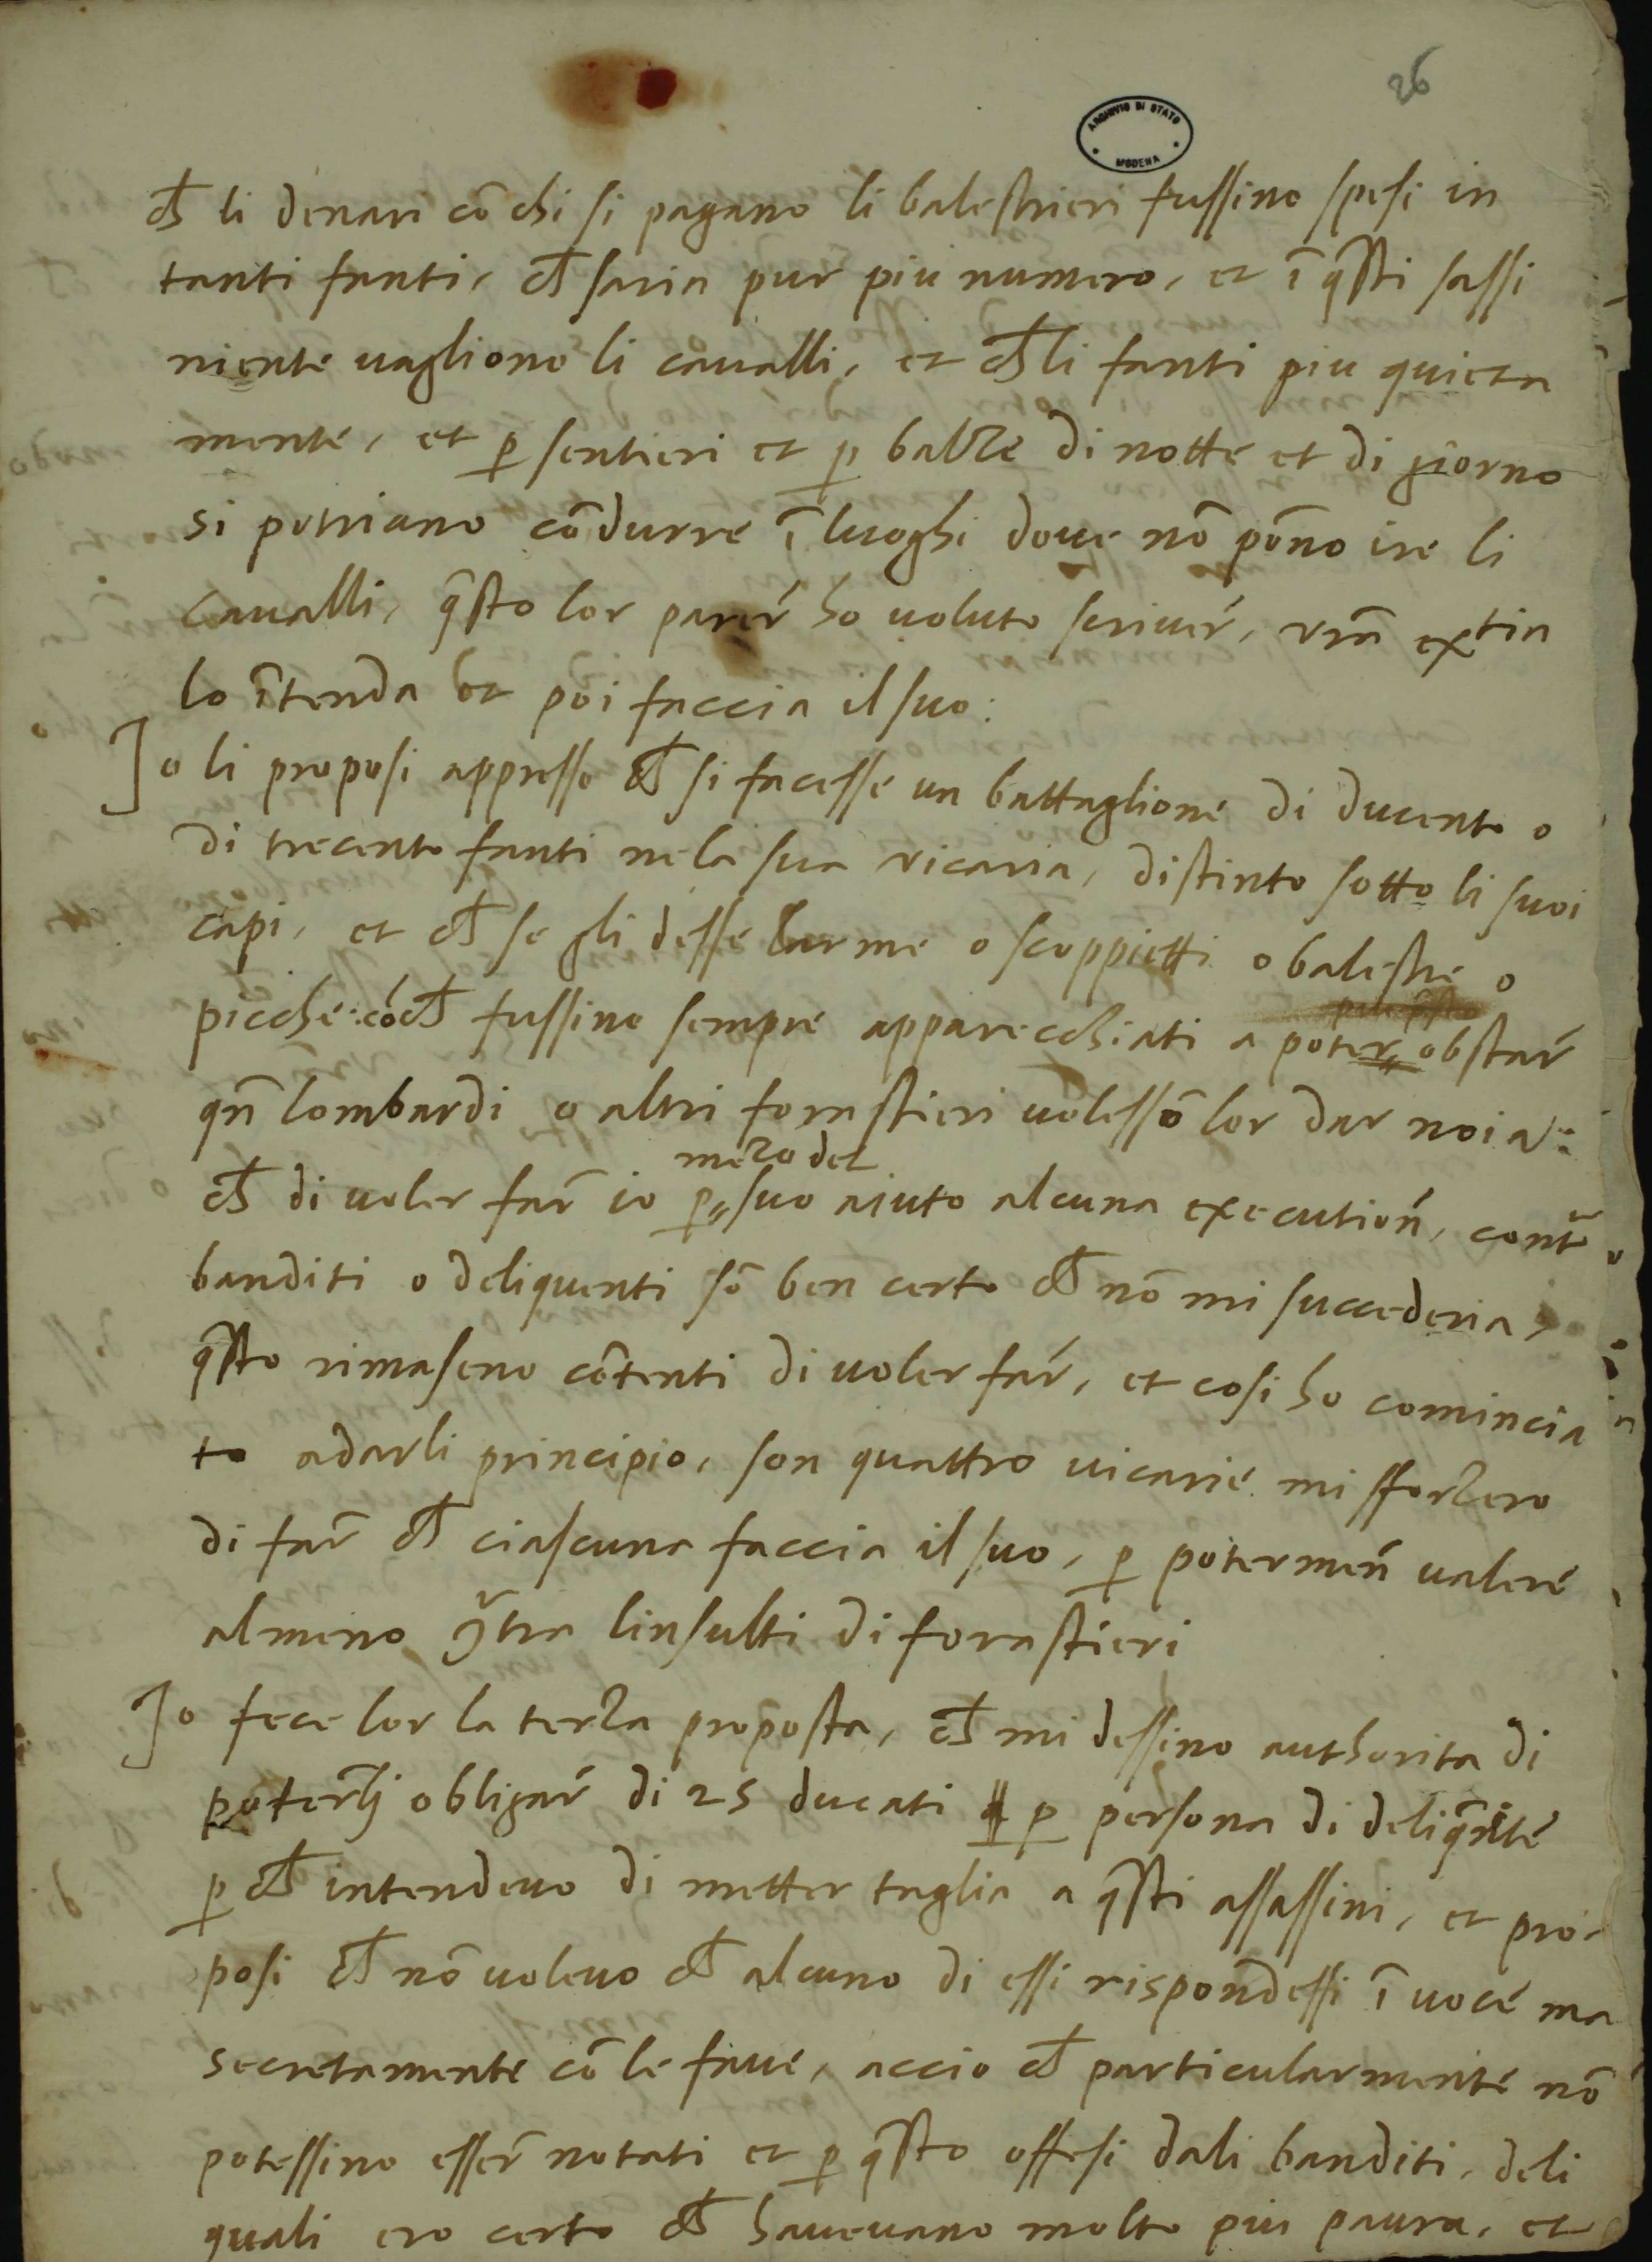 26
ARCHIVIO DI STATO
MODENA
ch̄ li denari cō chi si pagano li balestrieri fussino spesi in
tanti fanti, ch̄ saria pur piu numero, et ī q̄sti sassi
niente uagliono li caualli, et ch̄ li fanti piu quieta
mente, et ꝑ sentieri et ꝑ balze di notte et di giorno
si potriano cōdurre ī luoghi doue nō pōno ire li
caualli, q̄sto lor parer̄ ho uoluto scriuer̄, vr̄a extia
lo ītenda et poi faccia il suo:
Io li proposi appresso ch̄ si facesse un battaglione di ducento o
di trecento fanti ne la sua vicaria, distinto sotto li suoi
capi, et ch̄ se gli desse larme o scoppietti o balestre o
picche: cō ch̄ fussino sempre apparecchiati a poter obstar̄
qn̄ lombardi o altri forastieri uolessō lor dar noia:
mezo del
ch̄ di uoler far̄ io ꝑ suo aiuto alcuna execution̄, contr̄
banditi o deliquenti sō ben certo ch̄ nō mi succederia,
q̄sto rimaseno cōtenti di uoler far̄, et cosi ho comincia
to a darli principio, son quattro uicarie mi sforzero
di far̄ ch̄ ciascuna faccia il suo, ꝑ potermen̄ ualere
almeno ꝯtra linsulti di forastieri
Io fece lor la terza proposta, ch̄ mi dessino authorita di
poterlj obligar̄ di 25 ducati ꝑ persona di deliq̄nte
ꝑ ch̄ intendeuo di metter taglia a q̄sti assassini, et pro-
posi ch̄ nō uoleuo ch̄ alcuno di essi rispondessi ī uoce ma
secretamente cō le faue, accio ch̄ particularmente nō
potessino esser̄ notati et ꝑ q̄sto offesi dali banditi, deli
quali ero certo ch̄ haueuano molto piu paura, et